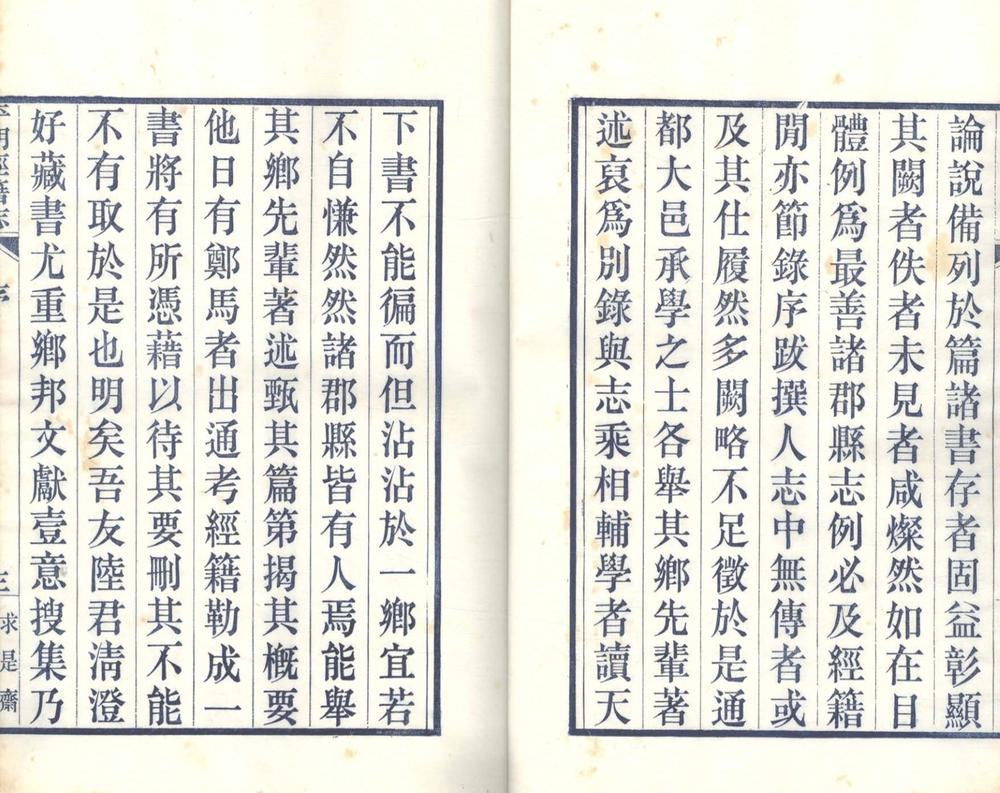 論說備列於篇諸書存者固益彰顯
其闕者佚者未見者咸燦然如在目
體例爲最善諸郡縣志例必及經籍
閒亦節錄序跋撰人志中無傳者或
及其仕履然多闕略不足徵於是通
都大邑承學之士各舉其鄉先輩著
述裒爲別錄與志乘相輔學者讀天
下書不能徧而但沾沾於一鄉宜若
不自慊然然諸郡縣皆有人焉能舉
其鄉先輩著述甄其篇第揭其槪要
他日有鄭馬者出通考經籍勒成一
書將有所憑藉以待其要刪其不能
不有取於是也明矣吾友陸君淸澄
好藏書尤重鄉邦文獻壹意搜集乃
明經籍志
序
三
求是齋